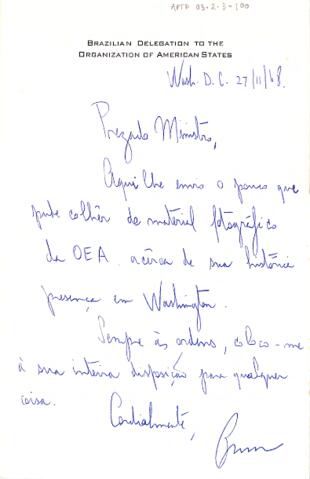 APTD 03.2-3-100
BRAZILIAN DELEGATION TO THE
ORGANIZATION OF AMERICAN STATES
Wash. D.C. 27/11/68.
Prezado Ministro,
Aqui lhe envio o pouco que
pude colhêr do material fotográfico
da OEA acêrca de sua histórica
presença em Washington.
Sempre às ordens, coloco-me
à sua inteira disposição para qualquer
coisa.
Cordialmente,